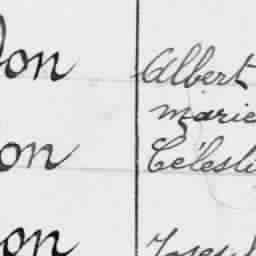 on Albert
marie
on Célesti
on Joseph